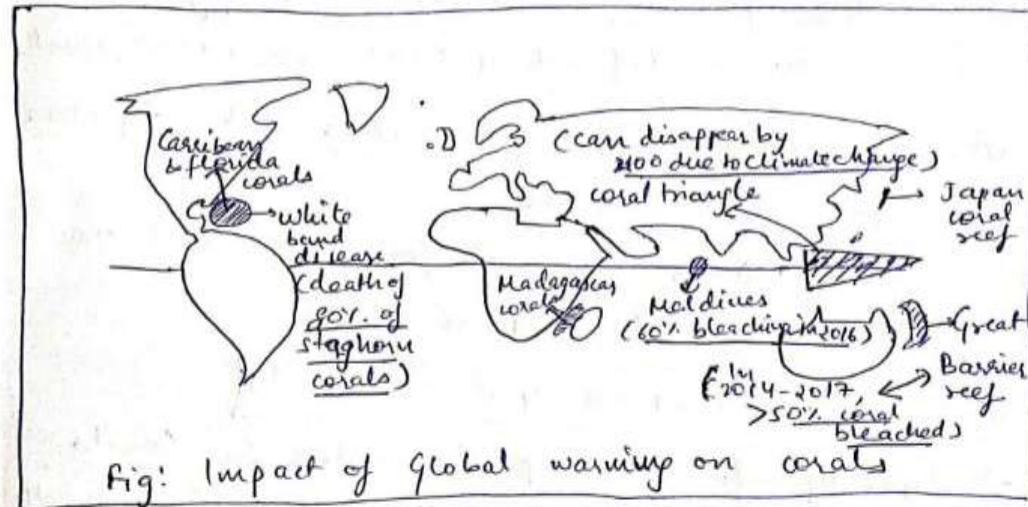 Carribean
to florida
corals
white
band
disease
(death of
90% of
staghorn
corals)
(can disappear by
2100 due to climate change)
coral triangle
Japan
coral
reef
Madagascar
corals
Maldives
(60% bleaching in 2016)
Great
Barrier
reef
(In
2014-2017,
>50% coral
bleached)
Fig: Impact of Global warming on corals